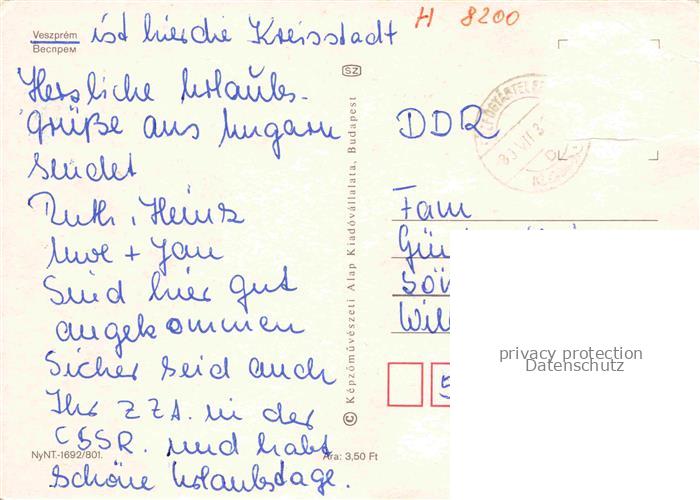 Veszprém ist hier die Kreisstadt
Веспрем
H 8200
Herzliche Urlaubs-
grüße aus Ungarn
sendet
Ruth, Heinz
Uwe + Jan
Sind hier gut
angekommen
Sicher seid auch
Ihr z Zt. in der
CSSR. und habt
schöne Urlaubstage.
NyNT.-1692/801.
Ára: 3,50 Ft
SZ
© Képzőművészeti Alap Kiadóvállalata, Budapest
DDR
Fam
5
privacy protection
Datenschutz